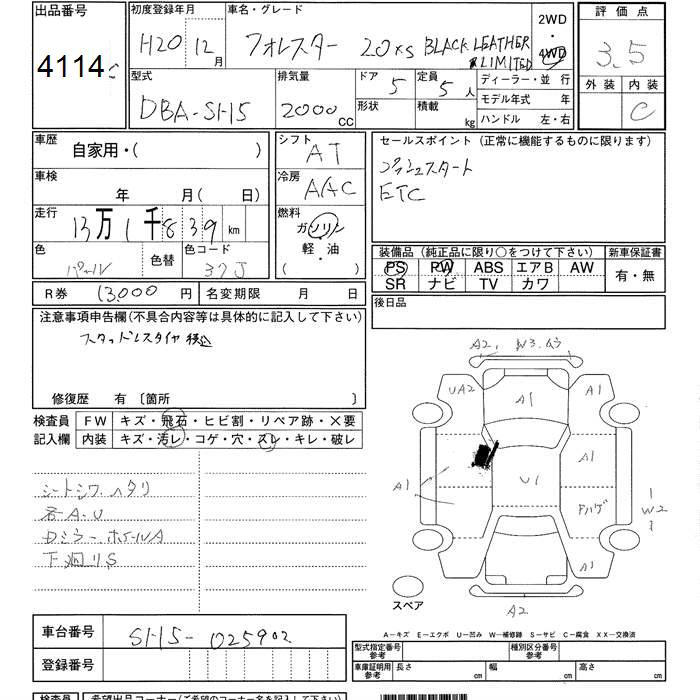 出品番号
4114
初度登録年月
H20 12月
車名・グレード
フォレスター 20XS BLACK LEATHER LIMITED
2WD
4WD
評価点
3.5
外装 内装
C
型式
DBA-SH5
排気量
2000 CC
ドア
5
定員
5人
形状
積載 kg
ディーラー・並行
モデル年式 年
ハンドル 左・右
車歴
自家用・( )
シフト
AT
セールスポイント (正常に機能するものに限ります)
プッシュスタート
ETC
車検
年 月( 日)
冷房
AAC
走行
13万1千839km
燃料
ガソリン
軽・油
( )
色
パール
色替
色コード
37J
装備品 (純正品に限り○をつけて下さい)
新車保証書
PS PW ABS エアB AW
SR ナビ TV カワ
有・無
R券 13000円
名変期限 月 日
後日品
注意事項申告欄(不具合内容等は具体的に記入して下さい)
スタッドレスタイヤ積込
修復歴 有 〔箇所 〕
検査員
記入欄
FW キズ・飛石・ヒビ割・リペア跡・×要
内装 キズ・汚レ・コゲ・穴・スレ・キレ・破レ
シートシワ.ヘタリ
各A.U
Dミラー.ホイールA
下廻リS
A2, W3.
UA2
A1
A1
A1
A1
U1
ドハゲ
W2
A1
A2
スペア
A-キズ E-エクボ U-凹み W-補修跡 S-サビ C-腐食 XX-交換済
車台番号
SH5-025902
登録番号
型式指定番号
参考
種別区分番号
参考
車庫証明用
参考
長さ cm
幅 cm
高さ cm
検査員
希望出品コーナー(ご希望のコーナー名を記入下さい)